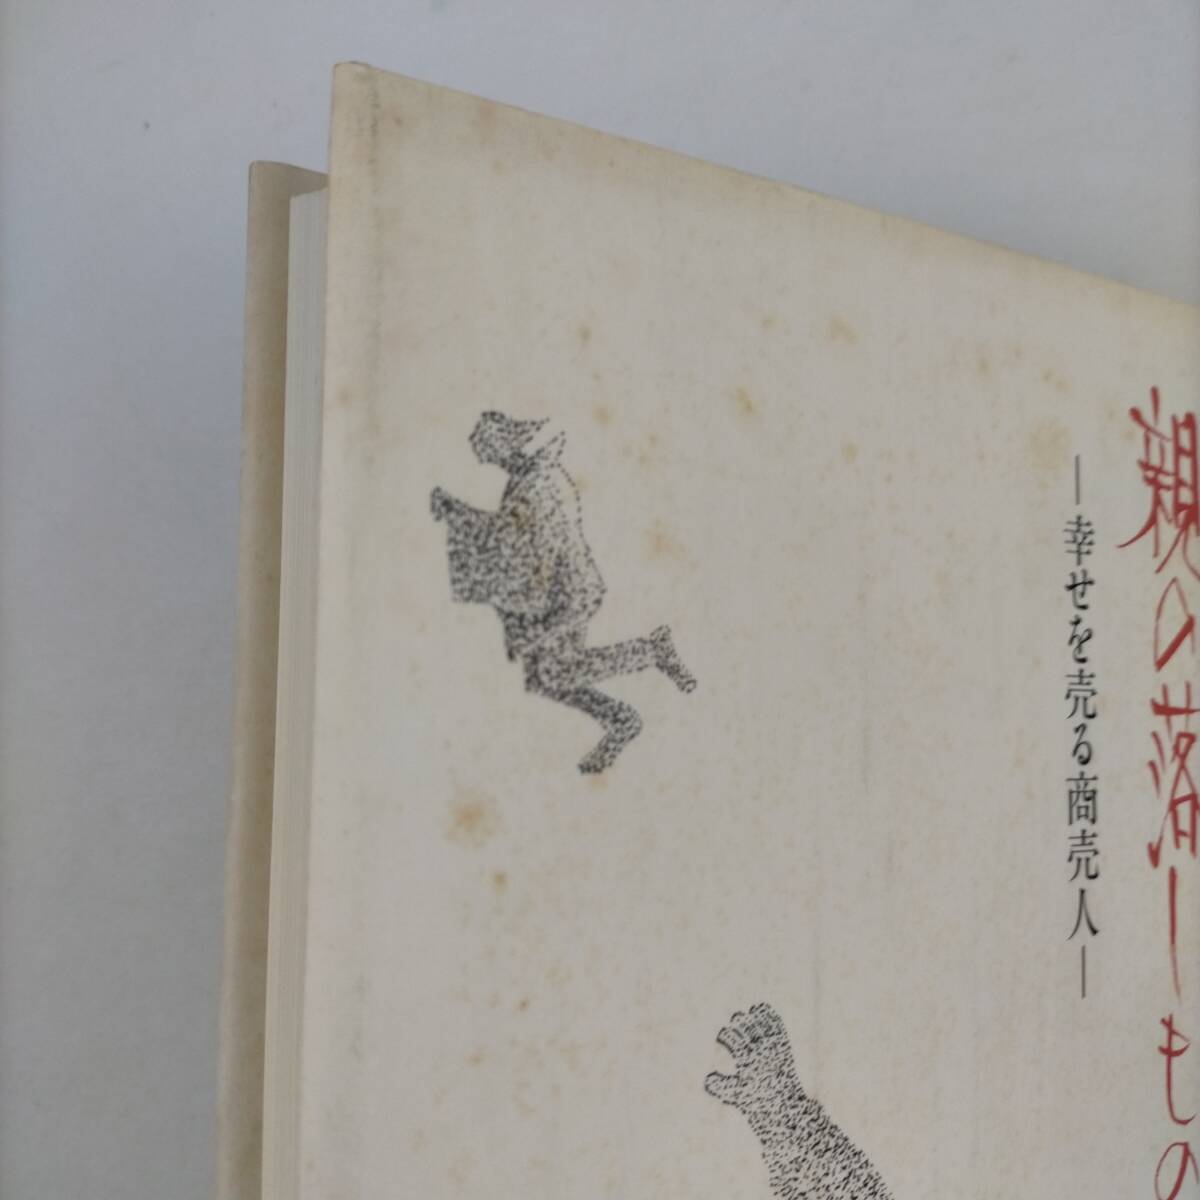 親の落しもの
—幸せを売る商売人—